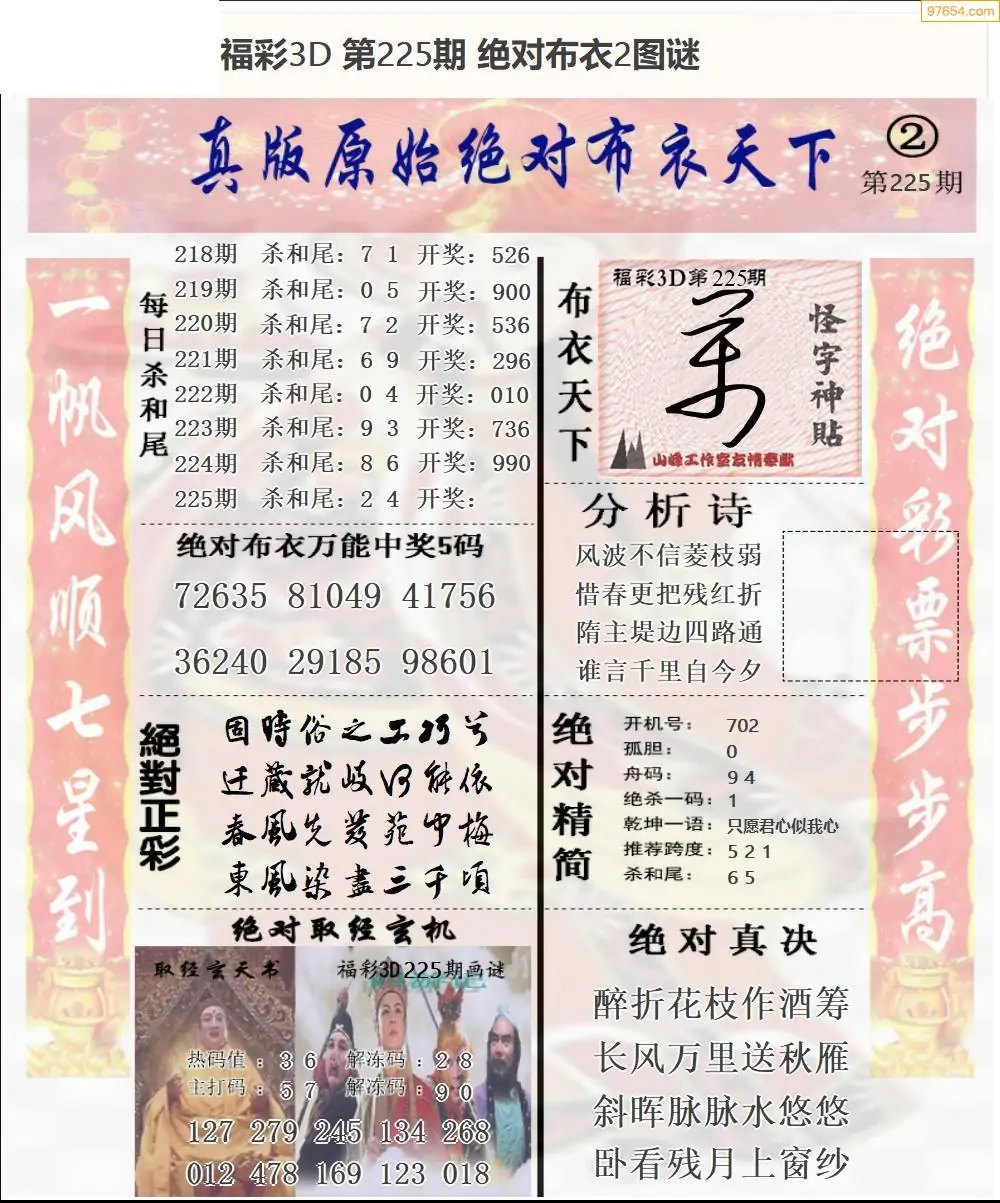 97654.com
福彩3D 第225期 绝对布衣2图谜
真版原始绝对布衣天下
②
第225期
一帆风顺七星到
每日杀和尾
218期 杀和尾：7 1 开奖：526
219期 杀和尾：0 5 开奖：900
220期 杀和尾：7 2 开奖：536
221期 杀和尾：6 9 开奖：296
222期 杀和尾：0 4 开奖：010
223期 杀和尾：9 3 开奖：736
224期 杀和尾：8 6 开奖：990
225期 杀和尾：2 4 开奖：
绝对布衣万能中奖5码
72635 81049 41756
36240 29185 98601
絕對正彩
固時俗之工巧兮
迁藏就岐何能依
春風先發苑中梅
東風染盡三千頃
绝对取经玄机
取经玄天书
福彩3D225期画谜
热码值：3 6 解冻码：2 8
主打码：5 7 解冻码：9 0
127 279 245 134 268
012 478 169 123 018
布衣天下
福彩3D第225期
怪字神貼
山峰工作室友情奉献
分析诗
风波不信菱枝弱
惜春更把残红折
隋主堤边四路通
谁言千里自今夕
绝对精简
开机号：702
孤胆：0
舟码：9 4
绝杀一码：1
乾坤一语：只愿君心似我心
推荐跨度：5 2 1
杀和尾：6 5
绝对真决
醉折花枝作酒筹
长风万里送秋雁
斜晖脉脉水悠悠
卧看残月上窗纱
绝对彩票步步高